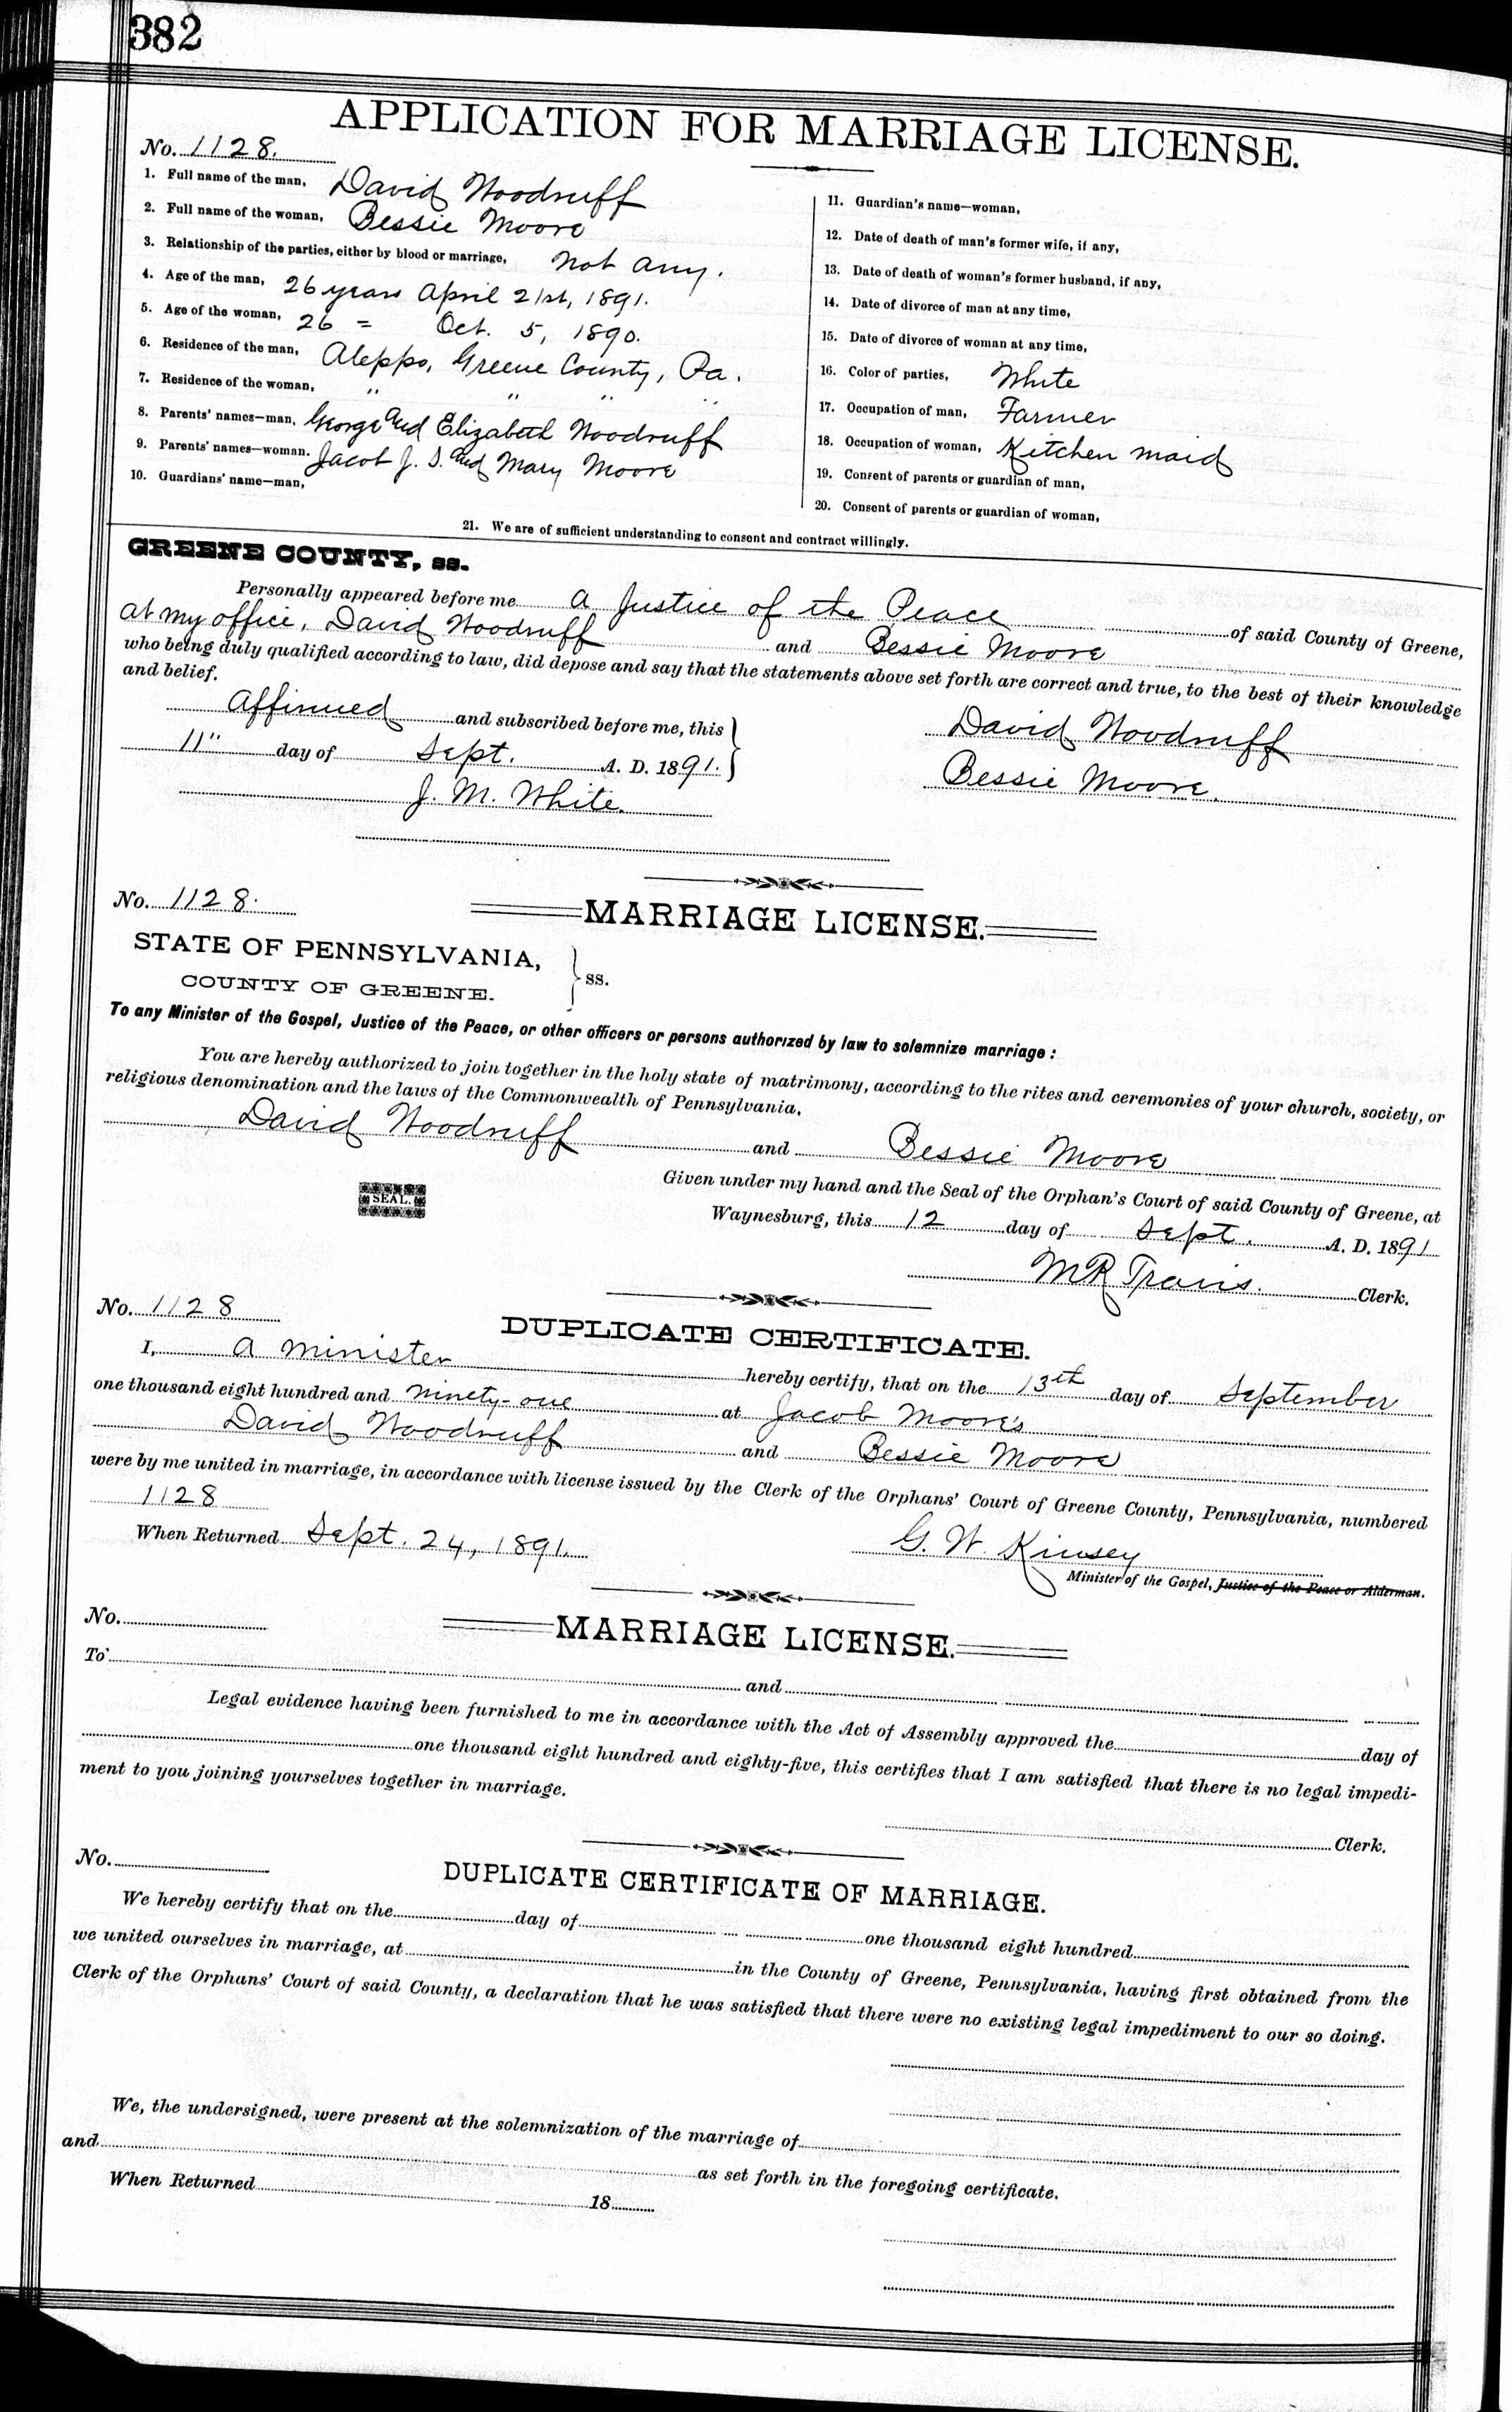 382
APPLICATION FOR MARRIAGE LICENSE.
No. 1128.
1. Full name of the man, David Woodruff
2. Full name of the woman, Bessie Moore
3. Relationship of the parties, either by blood or marriage, Not any.
4. Age of the man, 26 years April 21st, 1891.
5. Age of the woman, 26 = Oct. 5, 1890.
6. Residence of the man, Aleppo, Greene County, Pa.
7. Residence of the woman, " " " "
8. Parents' names—man, George and Elizabeth Woodruff
9. Parents' names—woman. Jacob J. S. and Mary Moore
10. Guardians' name—man,
11. Guardian's name—woman,
12. Date of death of man's former wife, if any,
13. Date of death of woman's former husband, if any,
14. Date of divorce of man at any time,
15. Date of divorce of woman at any time,
16. Color of parties, White
17. Occupation of man, Farmer
18. Occupation of woman, Kitchen maid
19. Consent of parents or guardian of man,
20. Consent of parents or guardian of woman,
21. We are of sufficient understanding to consent and contract willingly.
GREENE COUNTY, ss.
Personally appeared before me a Justice of the Peace of said County of Greene,
at my office, David Woodruff and Bessie Moore
who being duly qualified according to law, did depose and say that the statements above set forth are correct and true, to the best of their knowledge
and belief.
Affirmed and subscribed before me, this
11" day of Sept. A. D. 1891.
J. M. White.
David Woodruff
Bessie Moore.
No. 1128.
MARRIAGE LICENSE.
STATE OF PENNSYLVANIA,
COUNTY OF GREENE. ss.
To any Minister of the Gospel, Justice of the Peace, or other officers or persons authorized by law to solemnize marriage:
You are hereby authorized to join together in the holy state of matrimony, according to the rites and ceremonies of your church, society, or
religious denomination and the laws of the Commonwealth of Pennsylvania,
David Woodruff and Bessie Moore
Given under my hand and the Seal of the Orphan's Court of said County of Greene, at
SEAL.
Waynesburg, this 12 day of Sept. A. D. 1891
M R Travis. Clerk.
No. 1128
DUPLICATE CERTIFICATE.
I, a minister hereby certify, that on the 13th day of September
one thousand eight hundred and ninety-one at Jacob Moore's
David Woodruff and Bessie Moore
were by me united in marriage, in accordance with license issued by the Clerk of the Orphans' Court of Greene County, Pennsylvania, numbered
1128
When Returned Sept. 24, 1891.
G. W. Kinsey
Minister of the Gospel, Justice of the Peace or Alderman.
No.
MARRIAGE LICENSE.
To and
Legal evidence having been furnished to me in accordance with the Act of Assembly approved the day of
one thousand eight hundred and eighty-five, this certifies that I am satisfied that there is no legal impedi-
ment to you joining yourselves together in marriage.
Clerk.
No.
DUPLICATE CERTIFICATE OF MARRIAGE.
We hereby certify that on the day of one thousand eight hundred
we united ourselves in marriage, at in the County of Greene, Pennsylvania, having first obtained from the
Clerk of the Orphans' Court of said County, a declaration that he was satisfied that there were no existing legal impediment to our so doing.
We, the undersigned, were present at the solemnization of the marriage of
and as set forth in the foregoing certificate.
When Returned 18